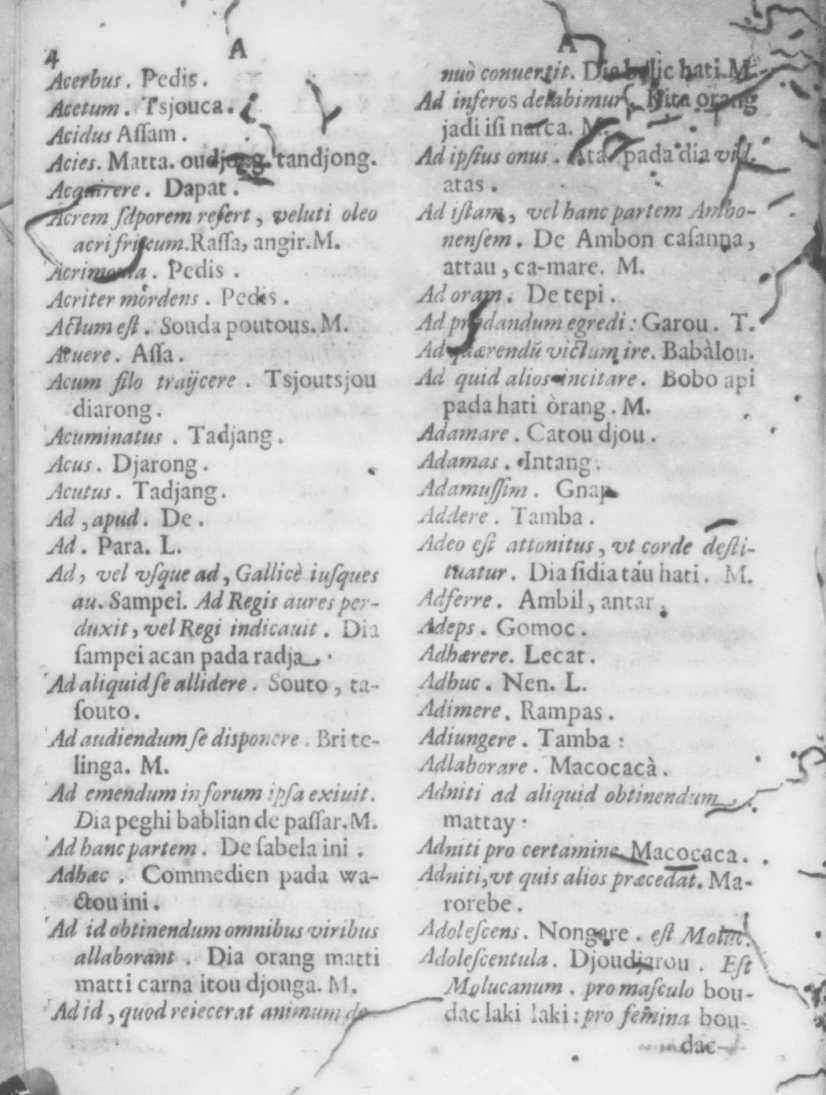 4
A
Acerbus. Pedis.
Acetum. Tsjouca.
Acidus Aſſam.
Acies. Matta. oudjong. tandjong.
Acquirere. Dapat.
Acrem ſaporem refert, veluti oleo
acri friſcum. Raſſa, angir. M.
Acrimonia. Pedis.
Acriter mordens. Pedis.
Actum eſt. Souda poutous. M.
Acuere. Aſſa.
Acum filo traÿcere. Tsjoutsjou
diarong.
Acuminatus. Tadjang.
Acus. Djarong.
Acutus. Tadjang.
Ad, apud. De.
Ad. Para. L.
Ad, vel vſque ad, Gallicè iuſques
au. Sampei. Ad Regis aures per-
duxit, vel Regi indicauit. Dia
ſampei acan pada radja.
Ad aliquid ſe allidere. Souto, ta-
ſouto.
Ad audiendum ſe diſponere. Bri te-
linga. M.
Ad emendum in forum ipſa exiuit.
Dia peghi bablian de paſſar. M.
Ad hanc partem. De ſabela ini.
Adhæc. Commedien pada wa-
ctou ini.
Ad id obtinendum omnibus viribus
allaborant. Dia orang matti
matti carna itou djouga. M.
Ad id, quod reiecerat animum de-
A
nuò conuertit. Dia balic hati. M.
Ad inferos delabimur. Kita orang
jadi iſi narca. M.
Ad ipſius onus. pada dia
atas.
Ad iſtam, vel hanc partem Ambo-
nenſem. De Ambon caſanna,
attau, ca-mare. M.
Ad oram. De tepi.
Ad prædandum egredi: Garou. T.
Ad quærendũ victum ire. Babàlou.
Ad quid alios incitare. Bobo api
pada hati òrang. M.
Adamare. Catou djou.
Adamas. Intang.
Adamuſſim. Gnap.
Addere. Tamba.
Adeo eſt attonitus, vt corde deſti-
tuatur. Dia ſidia táu hati. M.
Adferre. Ambil, antar.
Adeps. Gomoc.
Adhærere. Lecat.
Adhuc. Nen. L.
Adimere. Rampas.
Adiungere. Tamba:
Adlaborare. Macocacà.
Adniti ad aliquid obtinendum,
mattay.
Adniti pro certamine. Macocaca.
Adniti, vt quis alios præcedat. Ma-
rorebe.
Adoleſcens. Nongare. eſt Moluc.
Adoleſcentula. Djoudjarou. Eſt
Molucanum. pro maſculo bou-
dac laki laki: pro femina bou-
dac